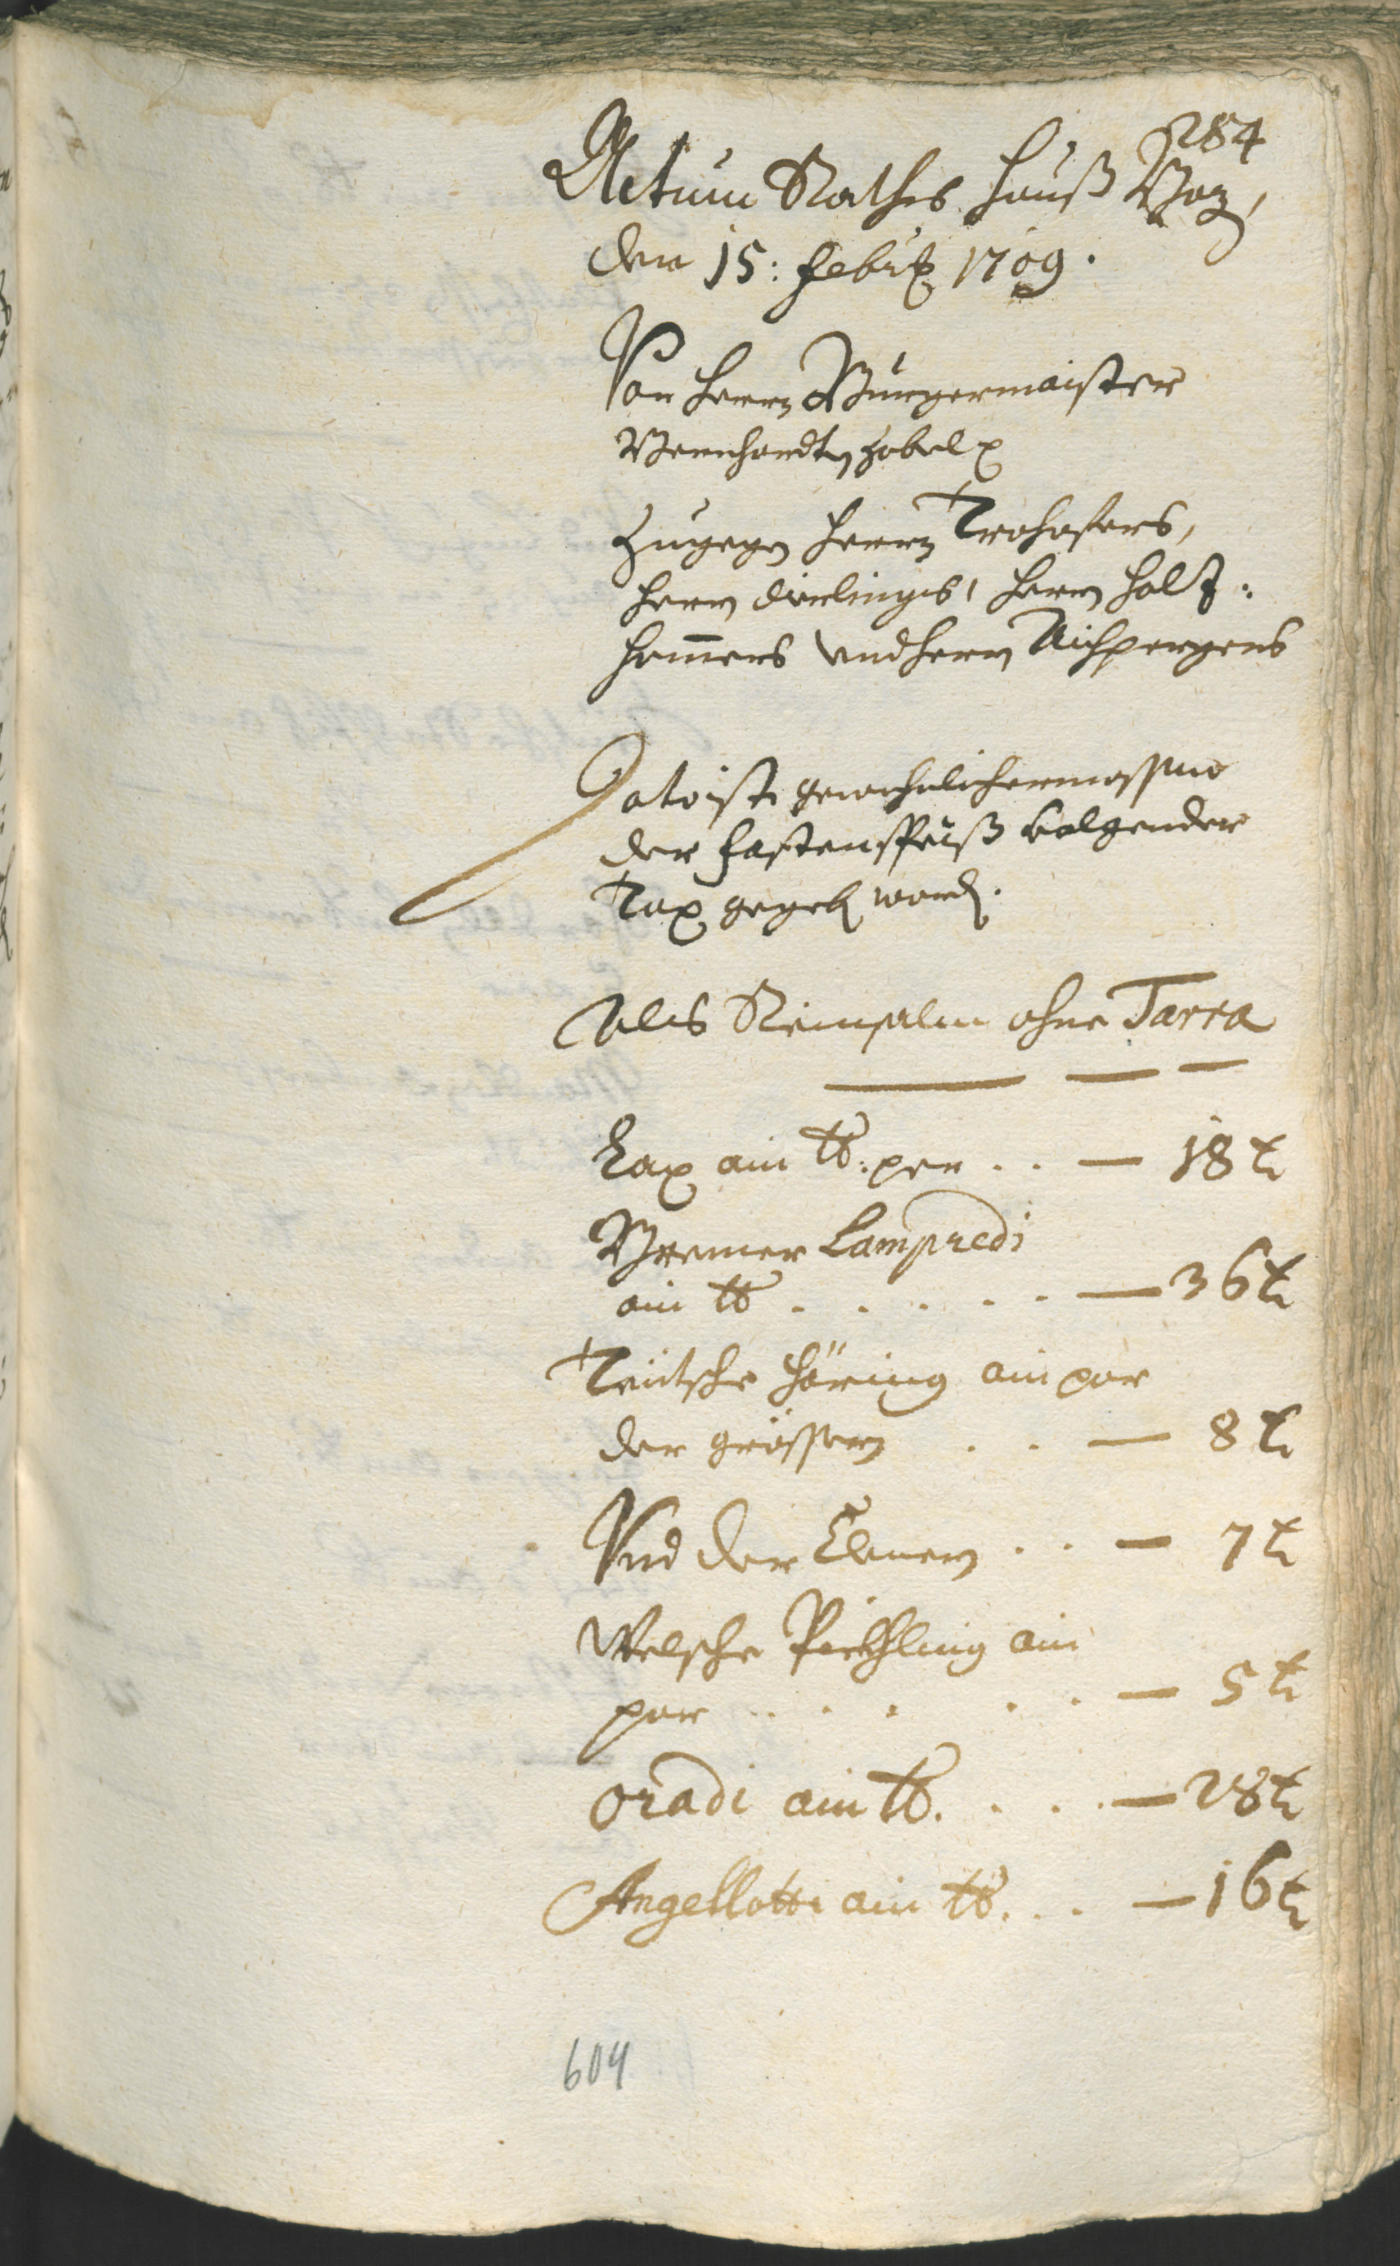 284
Actum Rathshauß Boz,
den 15: Feb: 1709.
Von Herrn Burgermaister
Bernhardt Zobel
Zugegen Herrn Trohofers,
Herrn dirlingers, Herrn Holz:
hamers und Herrn Aichpergers
Dato ist gewohnlichermassen
der Fastenspeiß volgender
Tax gegeb word.
Als Reinsalm ohne Tarra
Lax ain ℔: per . . — 18 k
Bremer Lampredi
ain ℔ . . . . . — 36 k
Teütsche Häring ain par
der grössern . . — 8 k
Und der Clenern . . — 7 k
Welsche Pickhling ain
par . . . . . — 5 k
Oradi ain ℔. . . . — 28 k
Angellotti ain ℔. . . — 16 k
604